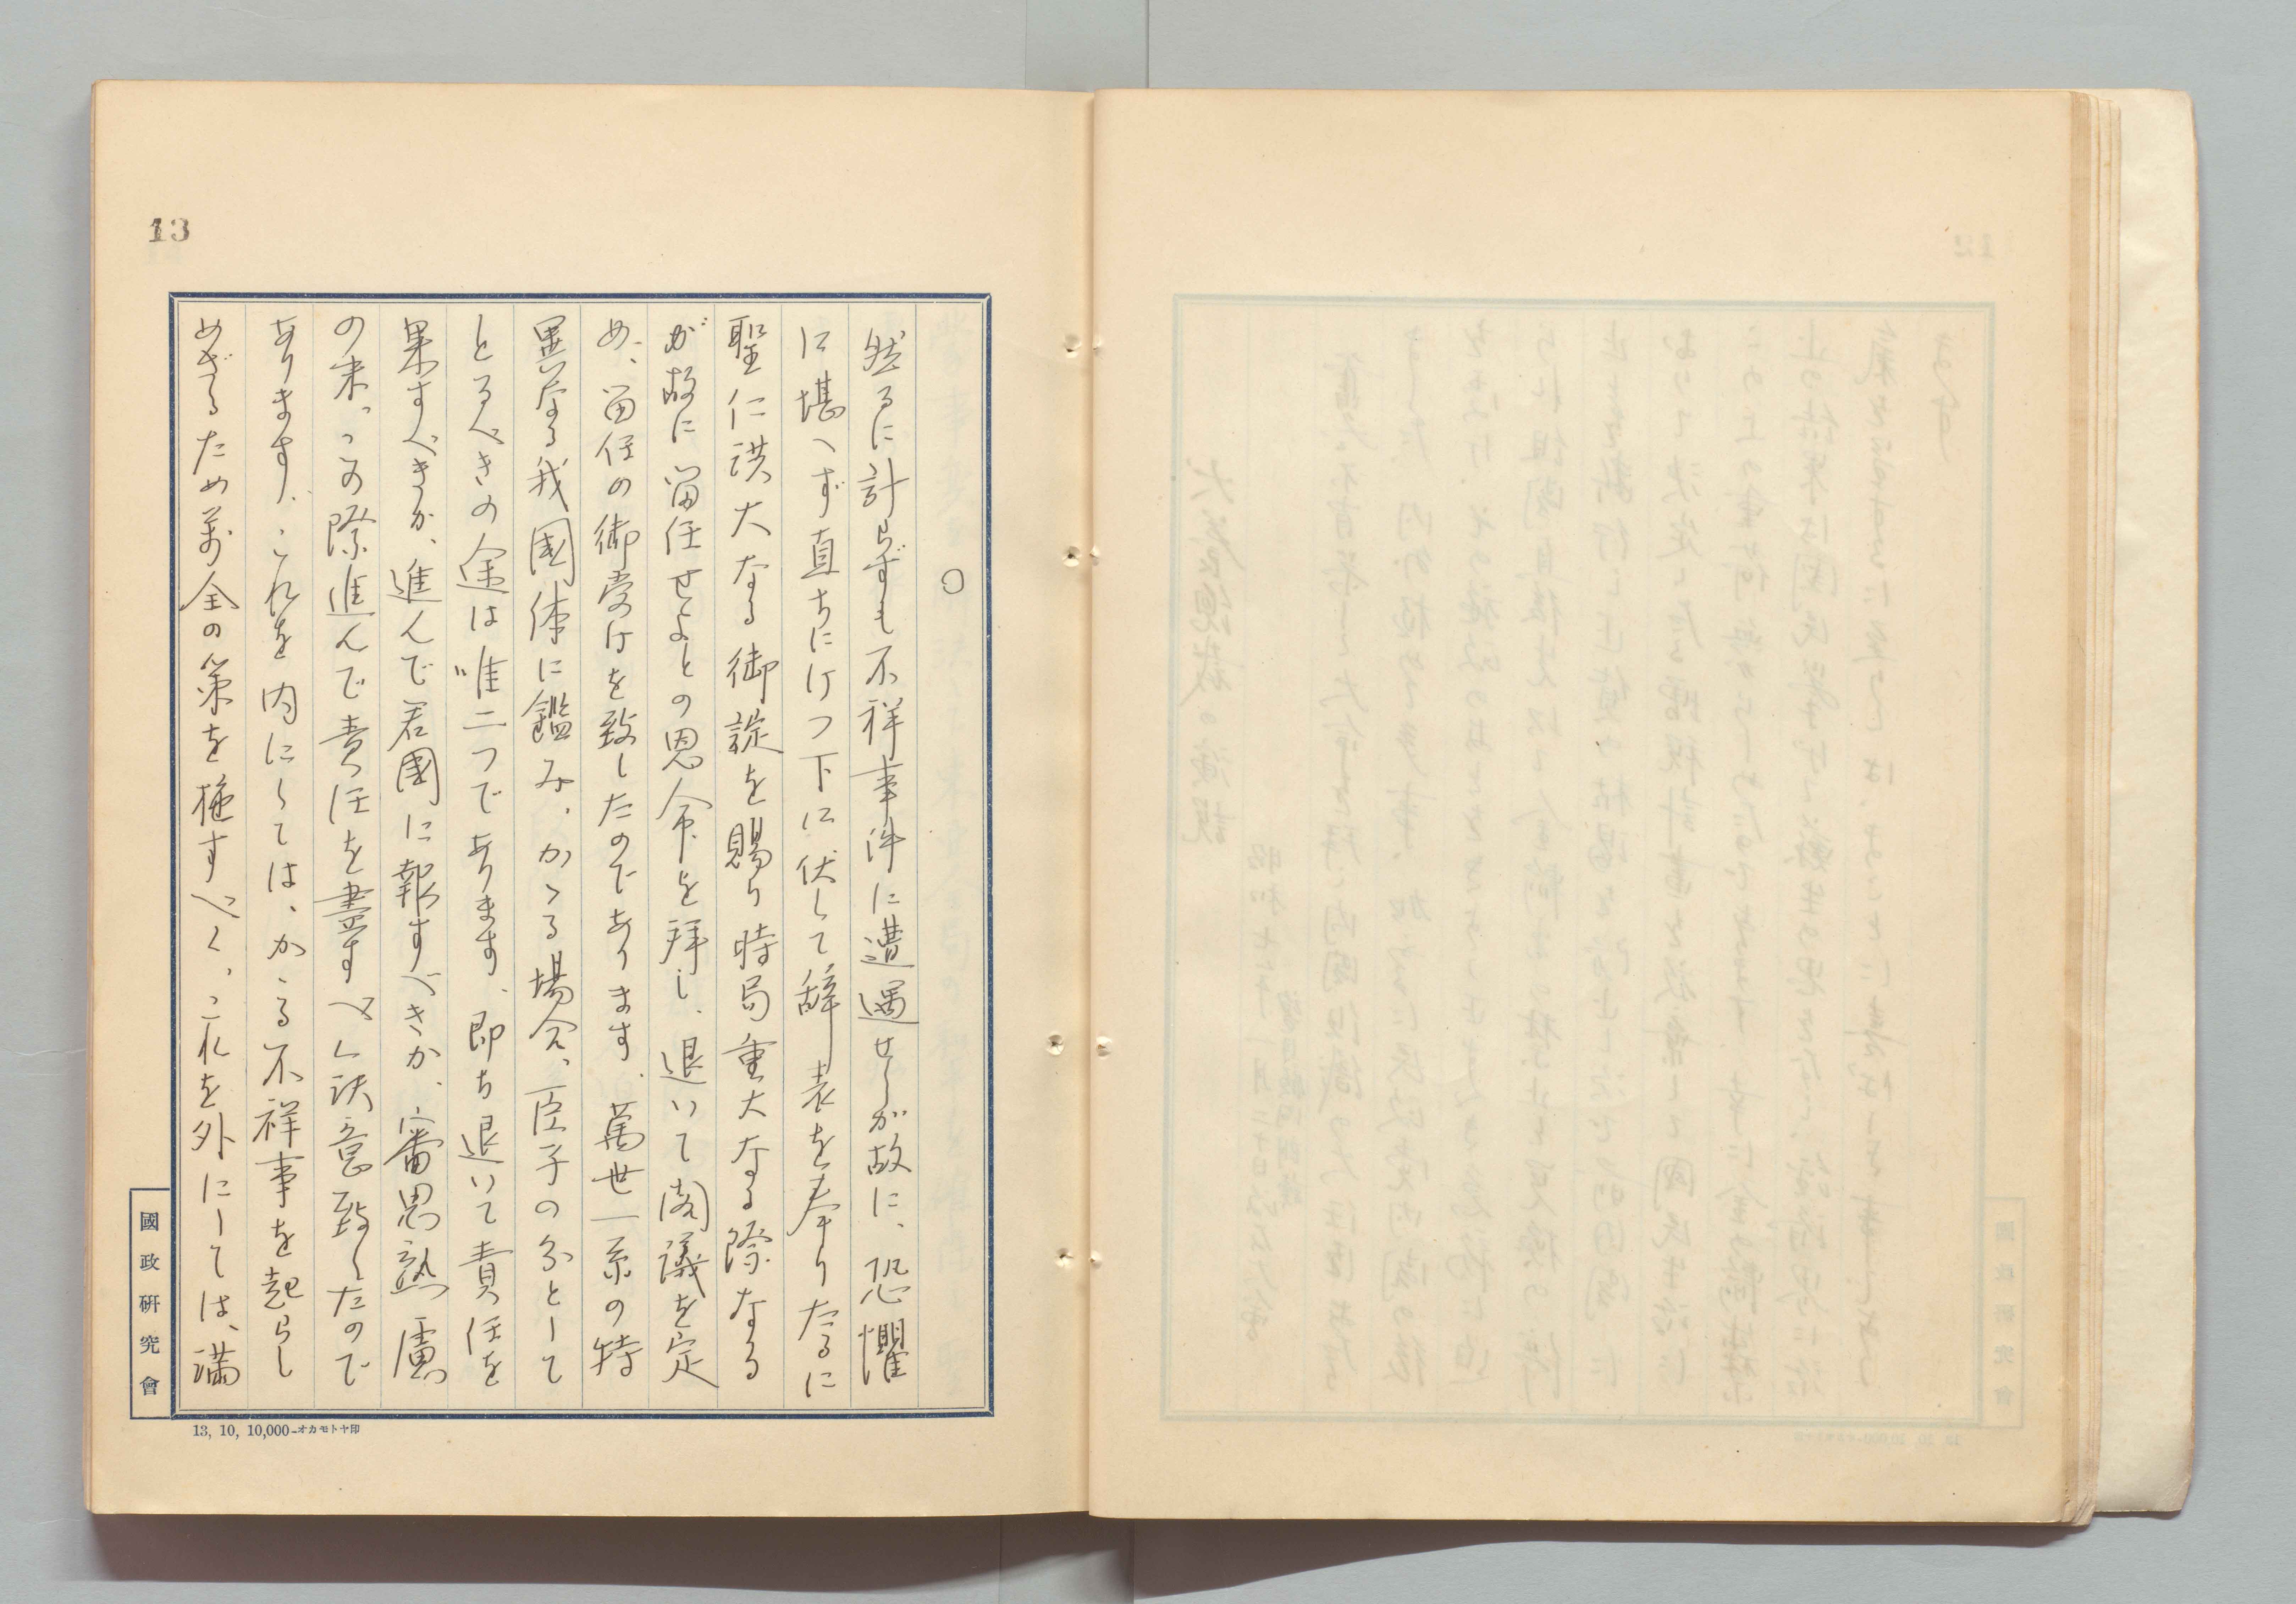 13
○
然るに計らずも不祥事件に遭遇せしが故に、恐懼
に堪へず直ちにけつ下に伏して辞表を奉りたるに
聖仁洪大なる御諚を賜り時局重大なる際なる
が故に留任せよとの恩命を拝し、退いて閣議を定
め、留任の御受けを致したのであります。萬世一系の特
異なる我國体に鑑み、かゝる場合、臣子の分として
とるべきの途は唯二つであります、即ち退いて責任を
果すべきか、進んで君國に報すべきか、審思熟慮
の末、この際進んで責任を盡すべく決意致したので
あります、これを内にしては、かゝる不祥事を起らし
めざるため萬全の策を施すべく、これを外にしては、満
國政研究會
13, 10, 10,000-オカモトヤ印